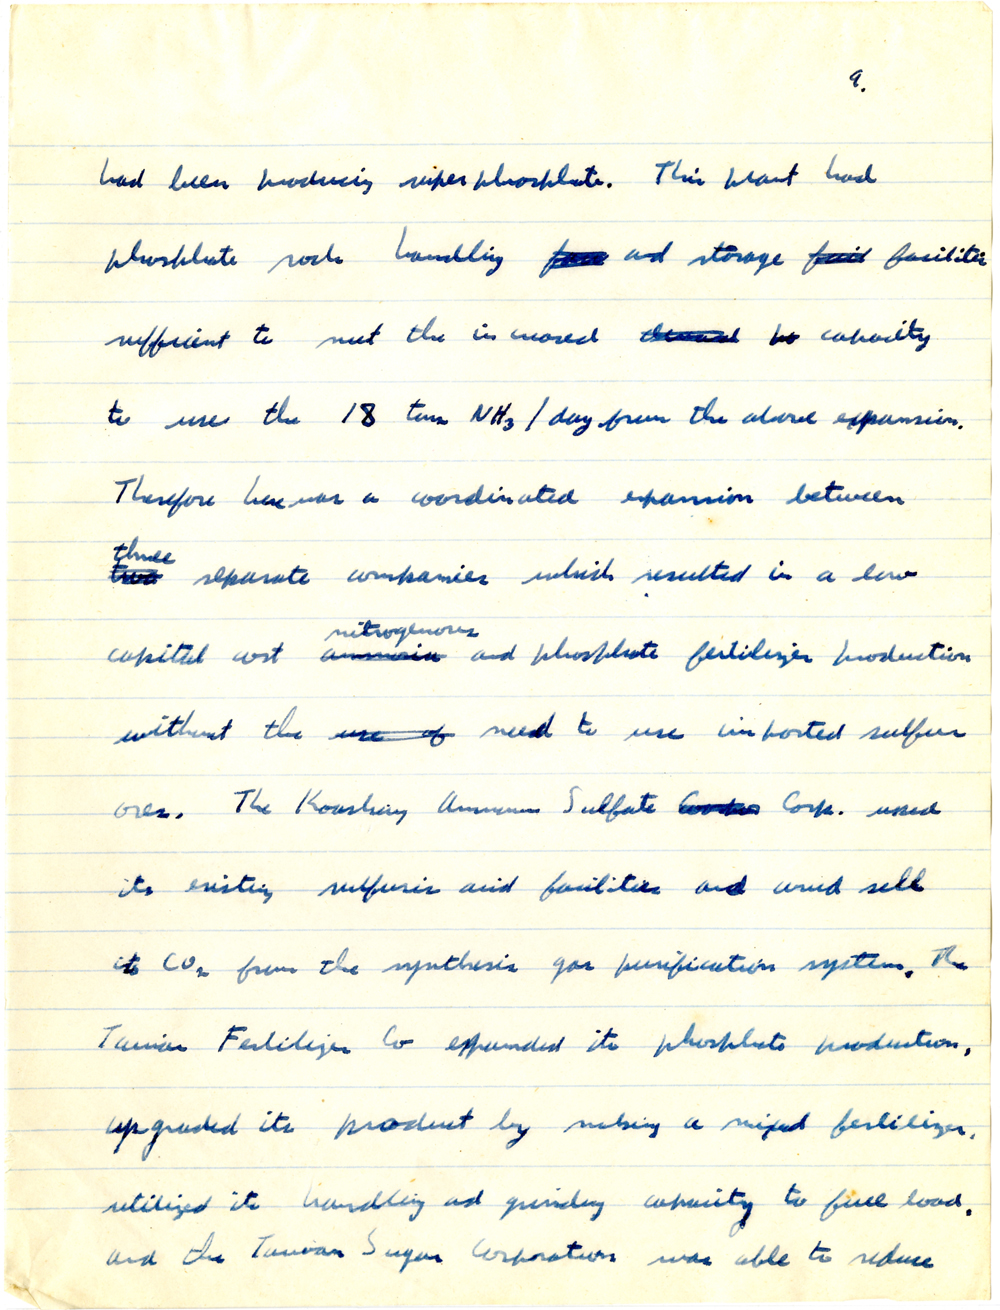 9.
had been producing superphosphate. This plant had
phosphate rock handling and storage facilities
sufficient to meet the increased capacity
to use the 18 tons NH3/day from the above expansion.
Therefore here was a coordinated expansion between
three
two separate companies which resulted in a low
nitrogenous
capital cost ammonia and phosphate fertilizer production
without the use of need to use imported sulfur
ores. The Koashiung Ammonium Sulfate Corp. used
its existing sulfuric acid facilities and could sell
its CO2 from the synthesis gas purification system. The
Taiwan Fertilizer Co expanded its phosphate production,
upgraded its product by making a mixed fertilizer,
utilized its handling and grinding capacity to full load,
and the Taiwan Sugar Corporation was able to reduce